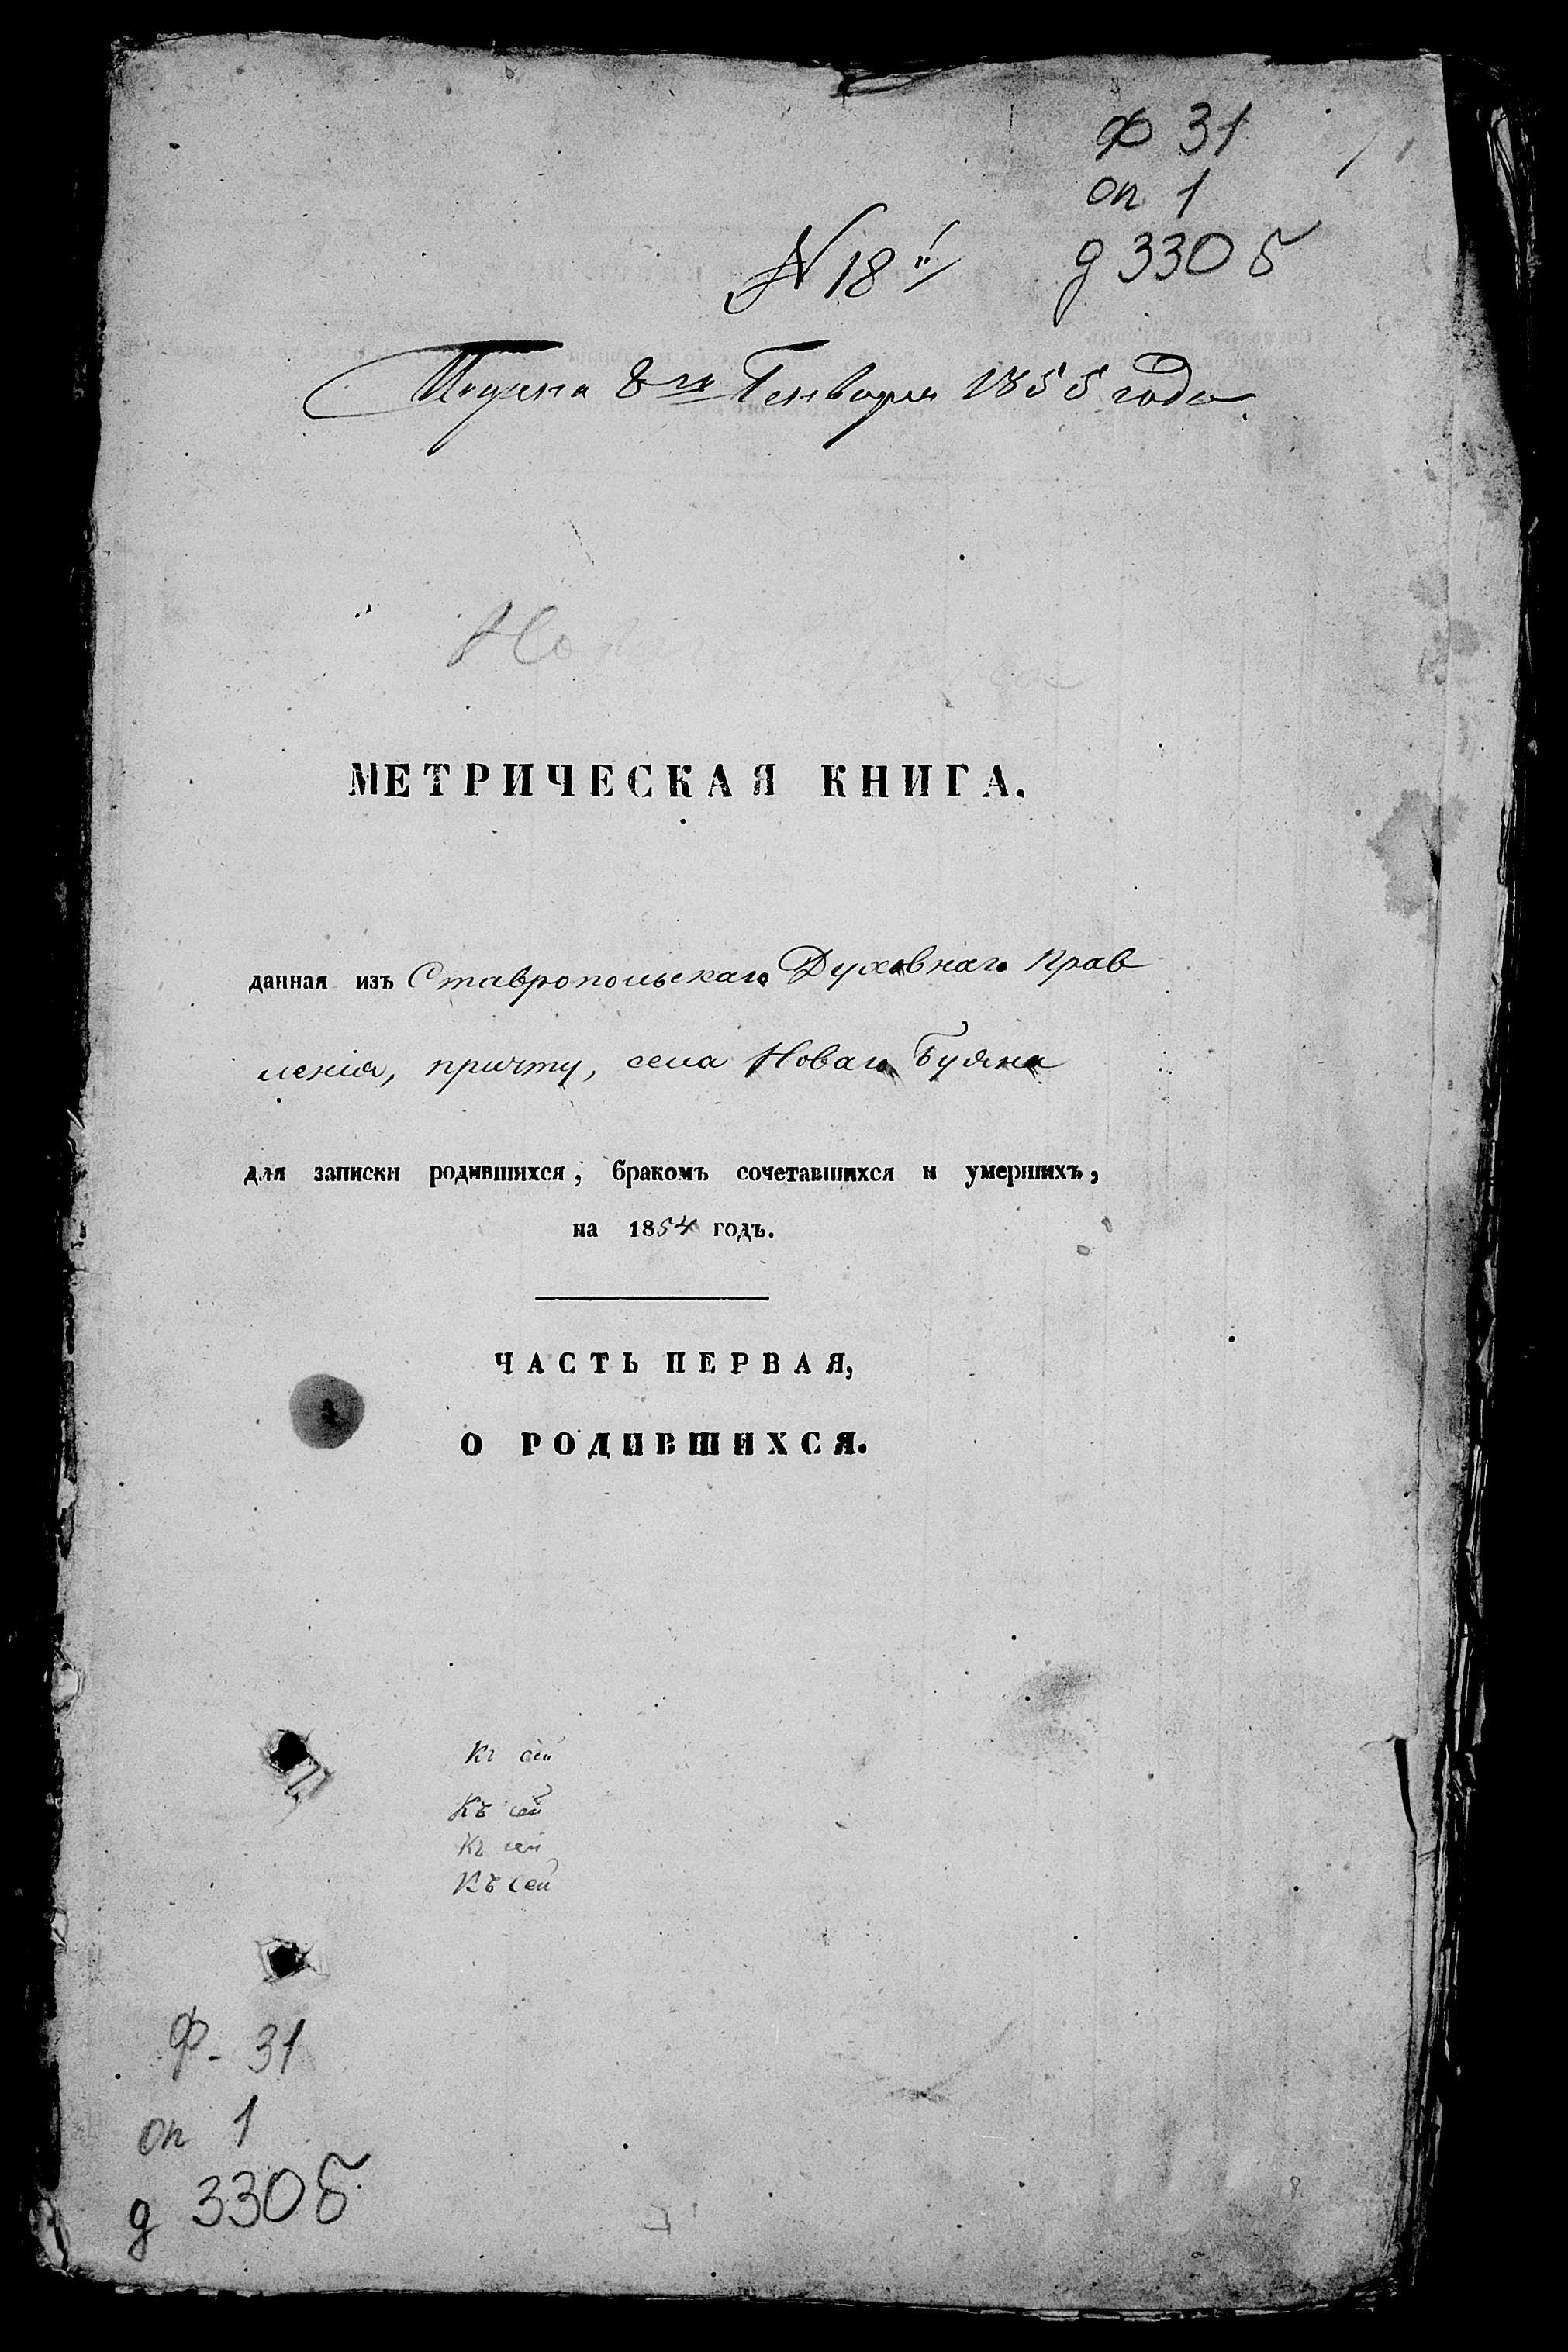 Ф 31
оп 1
д 330 б
N 18
8го Генваря 1855 года
МЕТРИЧЕСКАЯ КНИГА.
данная изъ Ставропольскаго Духовнаго Прав
ленія, причту, села Новаго Буяна
для записки родившихся, бракомъ сочетавшихся и умершихъ,
на 1854 годъ.
ЧАСТЬ ПЕРВАЯ,
О РОДИВШИХСЯ.
Къ сей
Къ сей
Къ сей
Къ сей
Ф - 31
оп 1
д 330 б